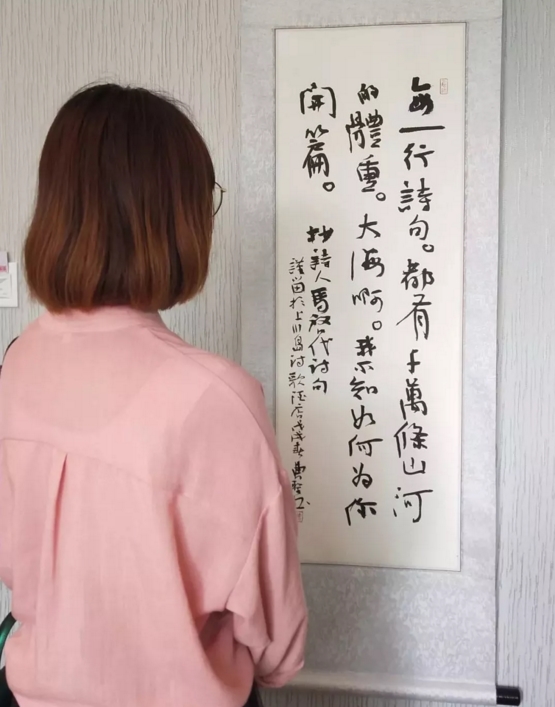 每一行詩句。都有千萬條山河
的體重。大海啊。我不知如何為你
開篇。
抄詩人馬啟代詩句
謹留於上川島詩歌酒店